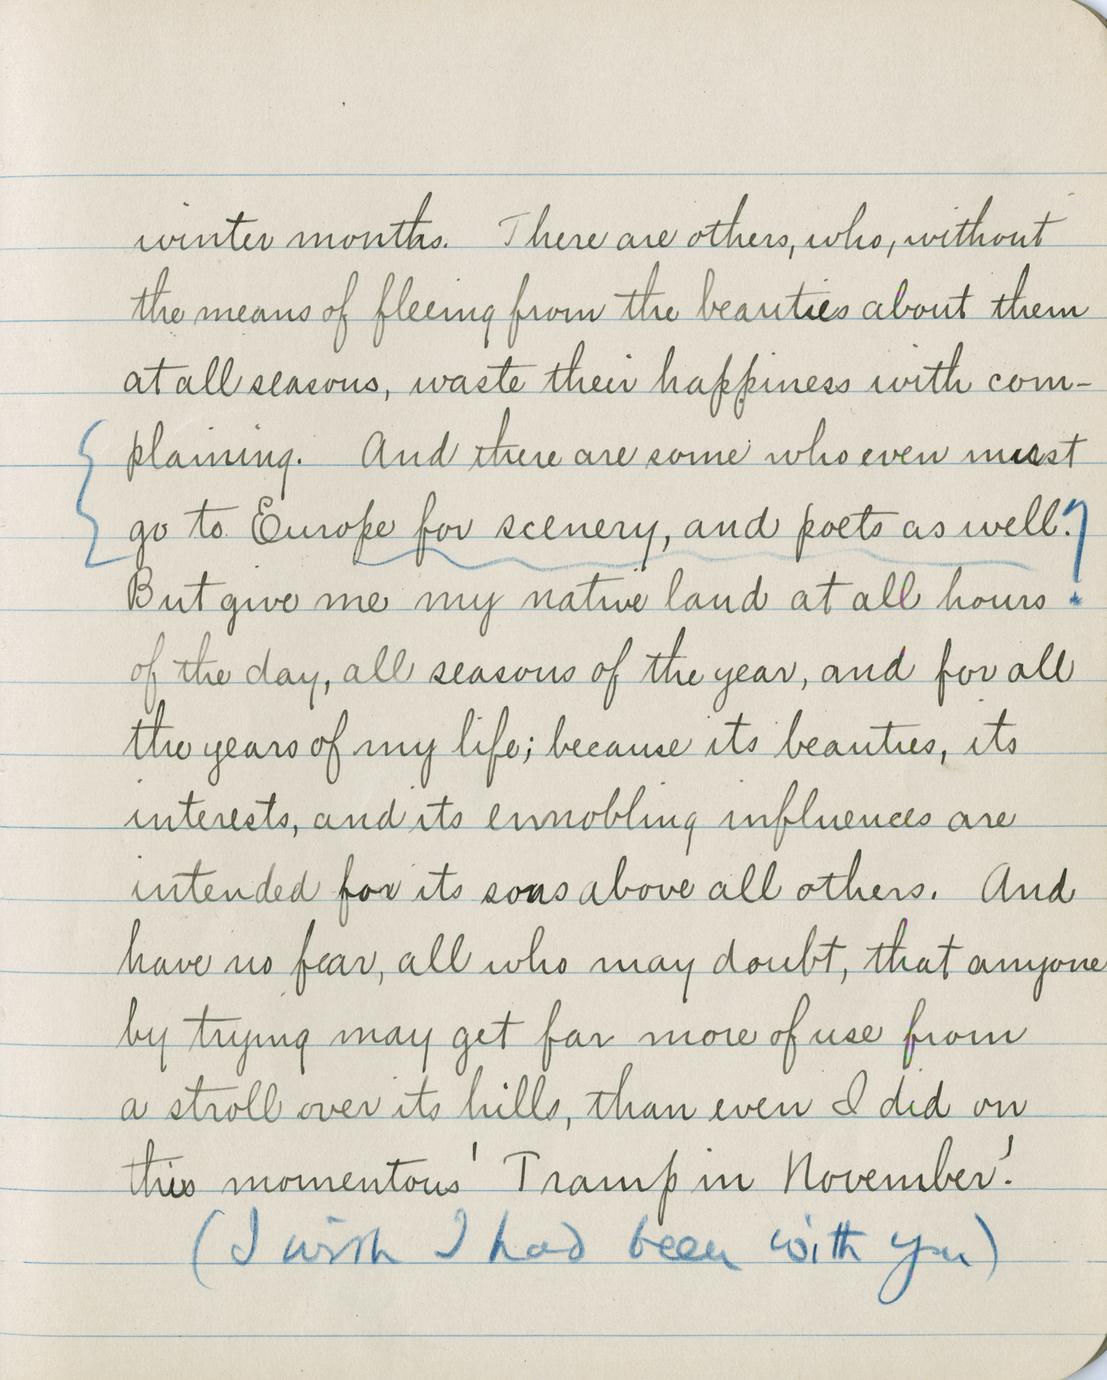 winter months. There are others, who, without
the means of fleeing from the beauties about them
at all seasons, waste their happiness with com-
plaining. And there are some who even must
go to Europe for scenery, and poets as well. !
But give me my native land at all hours
of the day, all seasons of the year, and for all
the years of my life; because its beauties, its
interests, and its ennobling influences are
intended for its sons above all others. And
have no fear, all who may doubt, that anyone
by trying may get far more of use from
a stroll over its hills, than even I did on
this momentous 'Tramp in November'.
(I wish I had been with you)